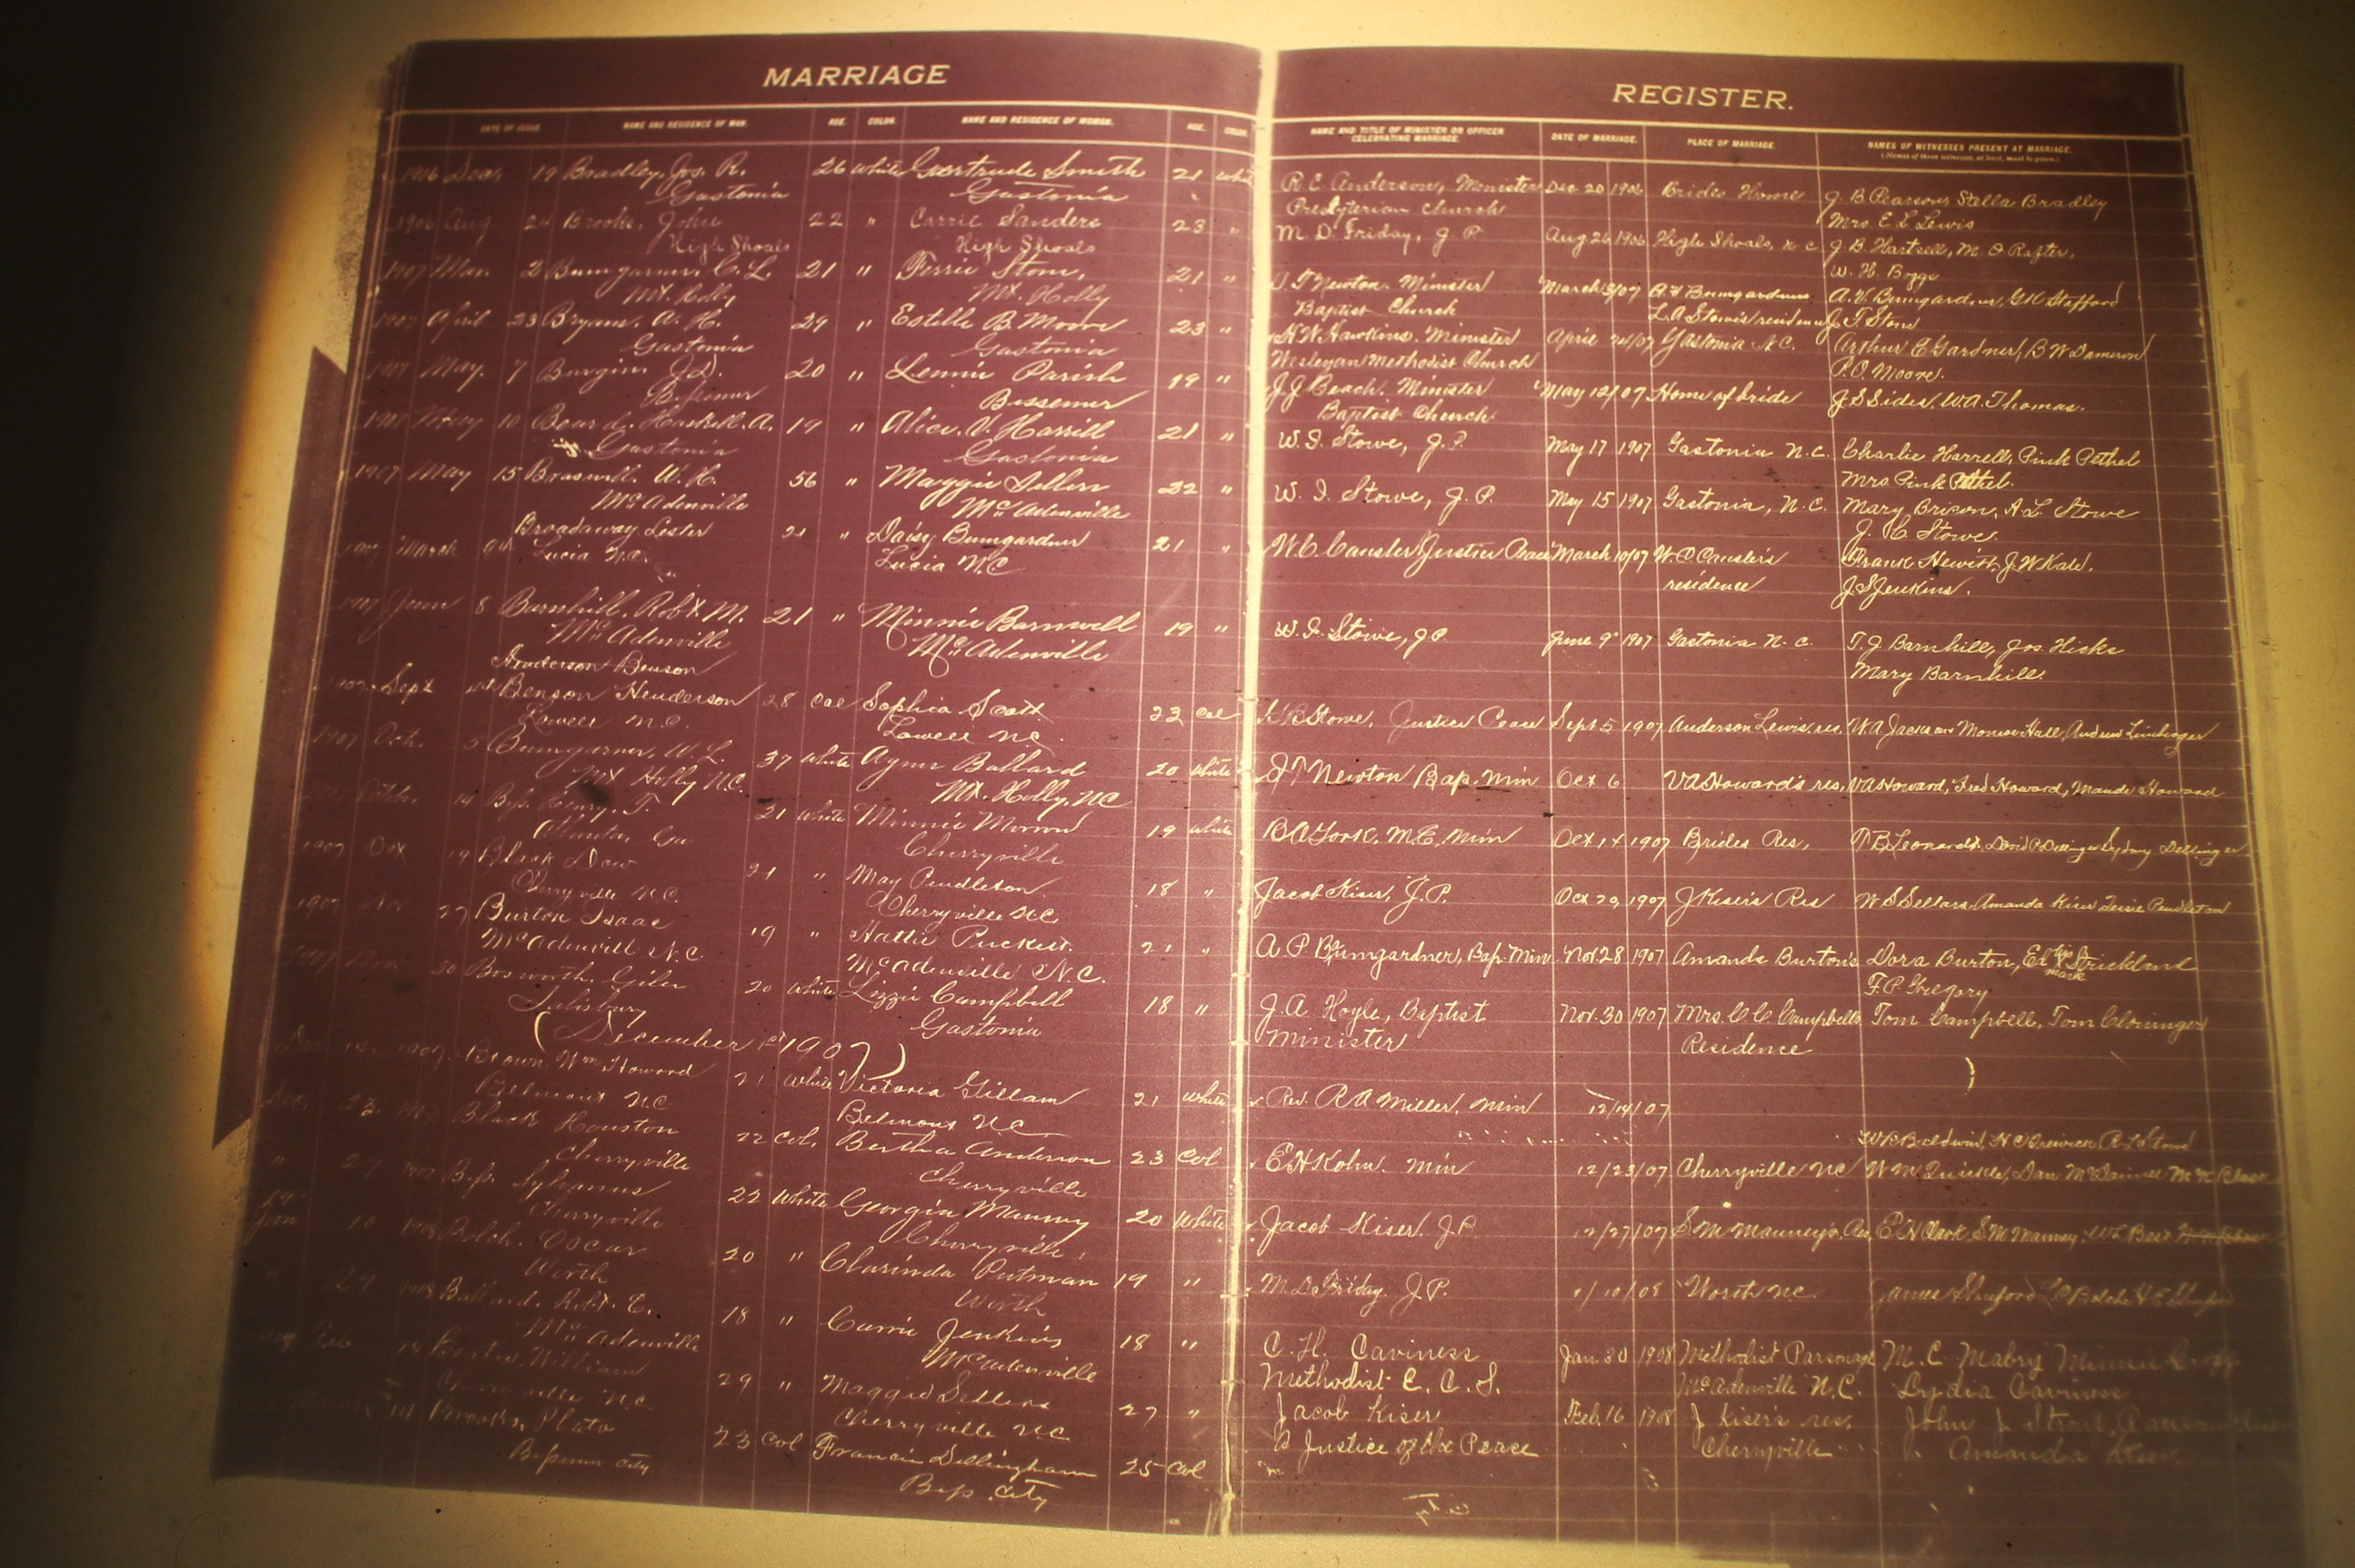 MARRIAGE
REGISTER.
DATE OF ISSUE. NAME AND RESIDENCE OF MAN. AGE. COLOR. NAME AND RESIDENCE OF WOMAN. AGE. COLOR.
NAME AND TITLE OF MINISTER OR OFFICER CELEBRATING MARRIAGE. DATE OF MARRIAGE. PLACE OF MARRIAGE. NAMES OF WITNESSES PRESENT AT MARRIAGE.
(Names of three witnesses, at least, must be given.)
1906 Dec. 19 Bradley, Jos. R. 26 White Gertrude Smith 21 White
Gastonia Gastonia
1906 Aug 24 Brooks, John 22 " Carrie Sanders 23 "
High Shoals High Shoals
1907 Mar. 2 Bumgarner, C. L. 21 " 21 "
Mt. Holly Mt. Holly
1907 April 23 Bryans, A. H. 29 " Estelle B. Moore 23 "
Gastonia Gastonia
1907 May. 7 Burgin, J.D. 20 " Lennie Parish 19 "
Bessemer Bessemer
1907 May 10 Beard, Haskell. A. 19 " Alice. V. Harrill 21 "
Gastonia Gastonia
1907 May 15 Braswell. W. H. 56 " Maggie 22 "
McAdenville McAdenville
Broadaway Lester 21 " Daisy Bumgardner 21 "
1907 March 9th Lucia N.C. Lucia N.C
1907 June 8 Barnhill, Robt. M. 21 " Minnie Barnwell 19 "
McAdenville McAdenville
Anderson Benson
1907 Sept Benson Henderson 28 Col Sophia Scott 23 Col
Lowell N.C. Lowell N.C.
1907 Oct. 5 Bumgarner, W. L. 37 White Agnes Ballard 20 White
Mt Holly N.C. Mt. Holly, NC
14 Henry, T. 21 White Minnie 19 White
Atlanta, Ga Cherryville
1907 Oct 19 Black Dow 21 " May Pendleton 18 "
Cherryville N.C. Cherryville N.C.
1907 27 Burton Isaac 19 " Hattie Puckett. 21 "
McAdenvill N.C. McAdenville N.C.
30 Bosworth, Giles 20 White Lizzie Campbell 18 "
Salisbury Gastonia
(December 1st 1907)
Dec 14. 1907. Brown. Wm Howard 21 White Victoria Gillam 21 White
Belmont N.C Belmont N.C
Dec. 23. Black Houston 22 Col. Bertha Anderson 23 Col
Cherryville Cherryville
" 27 1907 Sylvanus 22 White Georgia Mauney 20 White
Cherryville Cherryville
Jan 10 1908 Bolch. Oscar 20 " Clarinda Putman 19 "
Worth Worth
1908 Ballard. Robt. E. 18 " Carrie Jenkins 18 "
McAdenville McAdenville
William 29 " Maggie Sellers 27 "
Cherryville N.C. Cherryville N.C
14 Brooks, Plato 23 Col Francis Dellingham 25 Col
City City
R. C. Anderson, Minister Dec 20 1906 Brides Home J. B. Pearson, Stella Bradley
Presbyterian Church Mrs E. L. Lewis
M. D. Friday, J. P. Aug 26 1906 High Shoals, N. C J. B. Hartsell, M. O. Rafter,
W. H. Boggs
Newton. Minister March 3/07 A. V. Bumgardner, G.K. Stafford
Baptist Church L. A. Stowe's residence J. T. Stowe
H. W. Hawkins. Minister April 24/07 Gastonia N.C. Arthur E Gardner, B. W. Dameron
Wesleyan Methodist Church P. O. Moore.
J. J. Beach. Minister May 12/07 Home of bride J. S. Sides, W.A. Thomas.
Baptist Church
W. I. Stowe, J. P. May 17 1907 Gastonia N. C. Charlie Harrell, Pink Pethel
Mrs Pink Pethel.
W. I. Stowe, J. P. May 15 1907 Gastonia, N. C. Mary Brison, A. L. Stowe
J. C. Stowe.
W. C. Cansler Justice Peace March 10/07 W. C. Cansler's Frank Hewitt, J. W. Kale.
residence J. S. Jenkins.
W. I. Stowe, J.P. June 9" 1907 Gastonia N. C. T. J. Barnhill, Jos. Hicks
Mary Barnhill.
Stowe, Justice Peace Sept 5 1907 Anderson Lewis. res. W. A. Jackson Monroe Hall, Andrew Lineberger
Newton Bap. Min Oct 6 V A Howard's res, V A Howard, Fred Howard, Maude Howard
B A York, M.E. Min Oct 14 1907 Brides Res, Leonardt, David P Dellinger Sydney Dellinger
Jacob Kiser, J. P. Oct 29, 1907 J Kiser's Res W S Sellars, Amanda Kiser Pendleton
A. P. Bumgardner, Bap. Min. Nov. 28 1907 Amanda Burton's Dora Burton, Ed his mark Strickland
F. P. Gregory
J. A. Hoyle, Baptist Nov. 30 1907 Mrs. C. C. Campbells Tom Campbell, Tom Cloninger
Minister Residence
Rev. R A Miller, Min 12/14/07
E. H Kohn. Min 12/23/07 Cherryville NC
Jacob Kiser J.P. 12/27/07 S. M Mauney's Res, E. H Clark, S M Mauney
M. D Friday. J. P. 1/10/08 Worth N.C. James Shuford
C. H. Caviness Jan 30 1908 Methodist Parsonage M. C Mabry Minnie
Methodist E. C. S. McAdenville N.C. Lydia Caviness
Jacob Kiser Feb. 16 1908 J Kiser's res, John J
A Justice of the Peace Cherryville Amanda Kiser